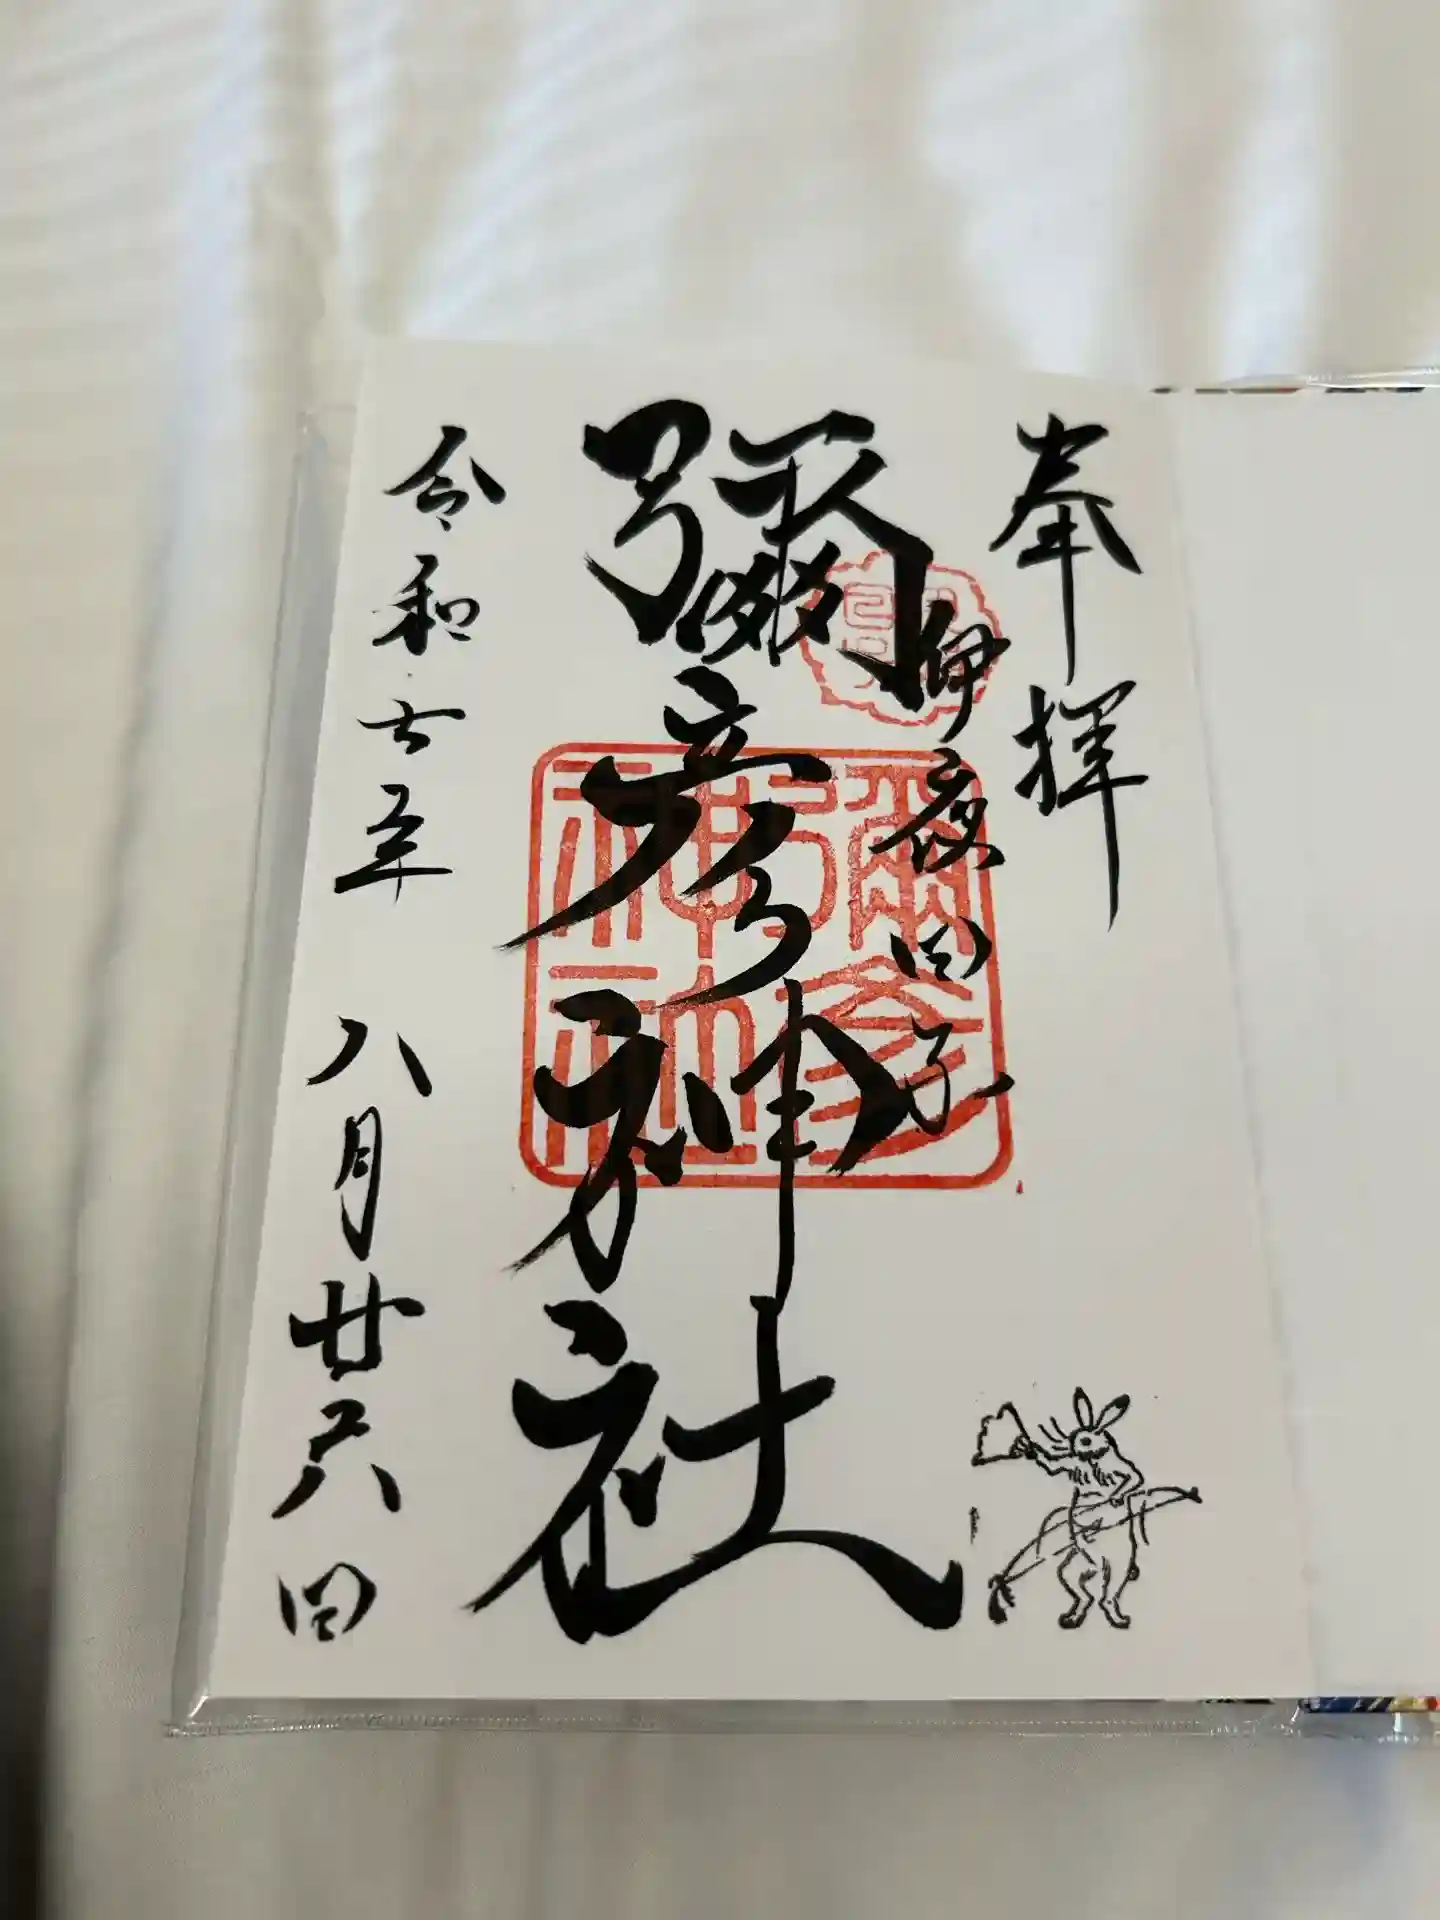 奉拝
伊夜日子
彌彦神社
彌彦
神社
令和七年 八月廿六日